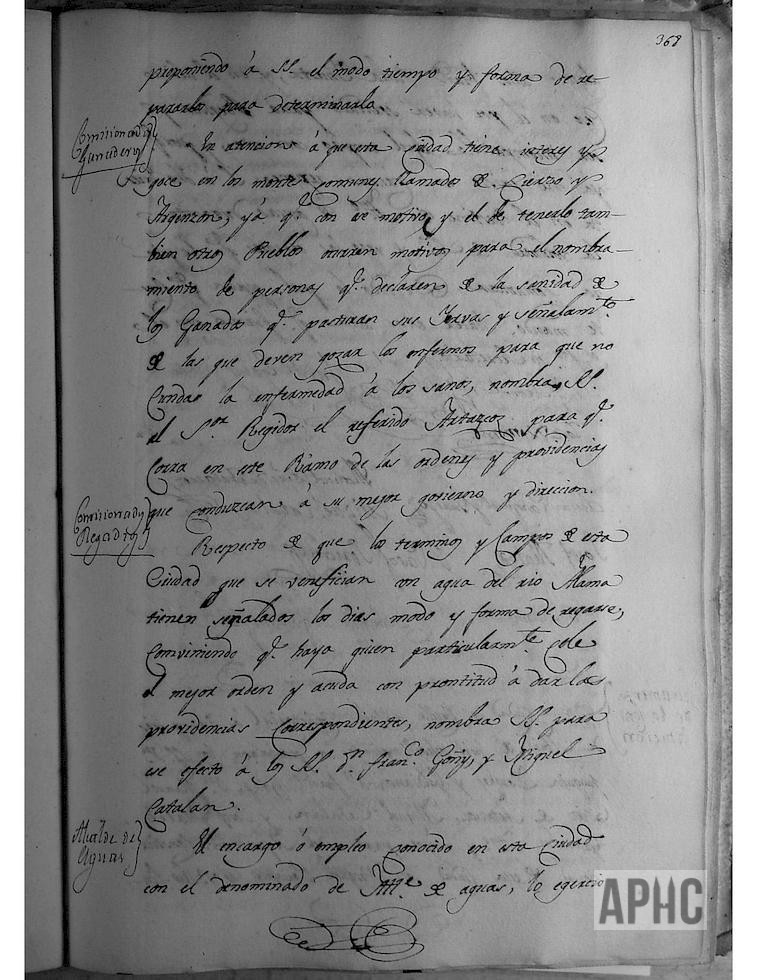 368
proponiendo á SS. el modo tiempo y forma de re-
pararlos para determinarlo
Comisionado
Ganadero
En atencion á que esta Ciudad tiene interes y
goce en los montes comunes llamados de Cierzo y
Argenzon, y á q.e con ese motivo, y el de tenerlo tam-
bien otros Pueblos ocurren motivos para el nombra-
miento de personas q.e declaren de la sanidad de
los Ganados q.e pasturan sus Yervas y señalam.to
de las que deven gozar los enfermos para que no
Cunda la enfermedad á los sanos, nombra SS.
al S.or Regidor el referido para q.e
Corra en este Ramo de las ordenes y providencias
que conduzcan á su mejor govierno y direcion.
Comisionados
Regadíos
Respecto de que los terminos y Campos de esta
Ciudad que se venefician con agua del rio Alama
tienen señalados los dias modo y forma de regarse,
Conviniendo q.e haya quien particularm.te cele
el mejor orden y acuda con prontitud á dar las
providencias Correspondientes, nombra SS. para
ese efecto á los SS. D.n Fran.co Goñy, y Miguel
Catalan.
Alcalde de
Aguas
El encargo ó empleo conocido en esta Ciudad
con el denominado de Alc.e de aguas, lo egercio
APHC